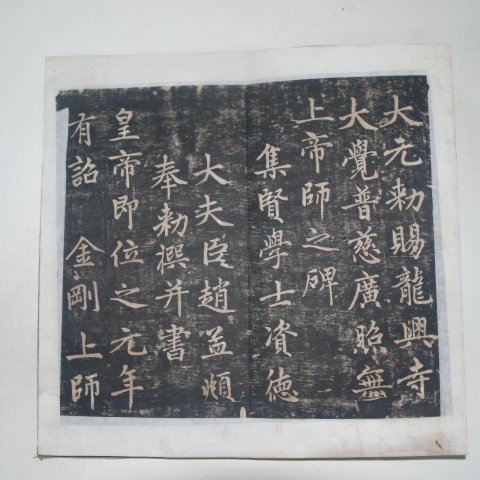 大元勑賜龍興寺
大覺普慈廣照無
上帝師之碑
集賢學士資德
大夫臣趙孟頫
奉勑撰并書
皇帝即位之元年
有詔金剛上師